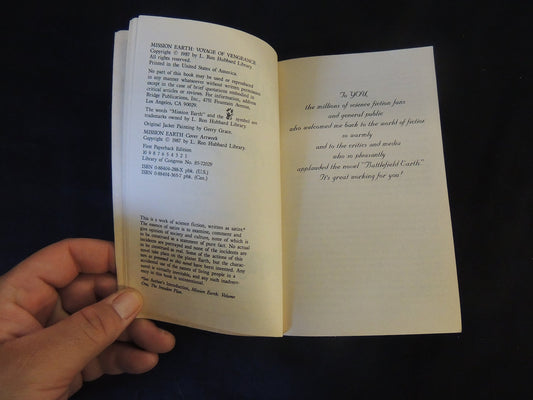 MISSION EARTH: VOYAGE OF VENGEANCE
Copyright © 1987 by L. Ron Hubbard Library.
All rights reserved.
Printed in the United States of America.
No part of this book may be used or reproduced
in any manner whatsoever without written permission
except in the case of brief quotations embodied in
critical articles or reviews. For information, address
Bridge Publications, Inc., 4751 Fountain Avenue,
Los Angeles, CA 90029.
The words "Mission Earth" and the symbol are
trademarks owned by L. Ron Hubbard Library.
Original Jacket Painting by Gerry Grace.
MISSION EARTH Cover Artwork
Copyright © 1987 by L. Ron Hubbard Library.
First Paperback Edition
10 9 8 7 6 5 4 3 2 1
Library of Congress No. 85-72029
ISBN 0-88404-288-X pbk. (U.S.)
ISBN 0-88404-365-7 pbk. (Can.)
This is a work of science fiction, written as satire.*
The essence of satire is to examine, comment and
give opinion of society and culture, none of which is
to be construed as a statement of pure fact. No actual
incidents are portrayed and none of the incidents are
to be construed as real. Some of the actions of this
novel take place on the planet Earth, but the charac-
ters as presented in this novel have been invented. Any
accidental use of the names of living people in a
novel is virtually inevitable, and any such inadver-
tency in this book is unintentional.
*See Author's Introduction, Mission Earth: Volume
One, The Invaders Plan.
To YOU,
the millions of science fiction fans
and general public
who welcomed me back to the world of fiction
so warmly
and to the critics and media
who so pleasantly
applauded the novel "Battlefield Earth."
It's great working for you!